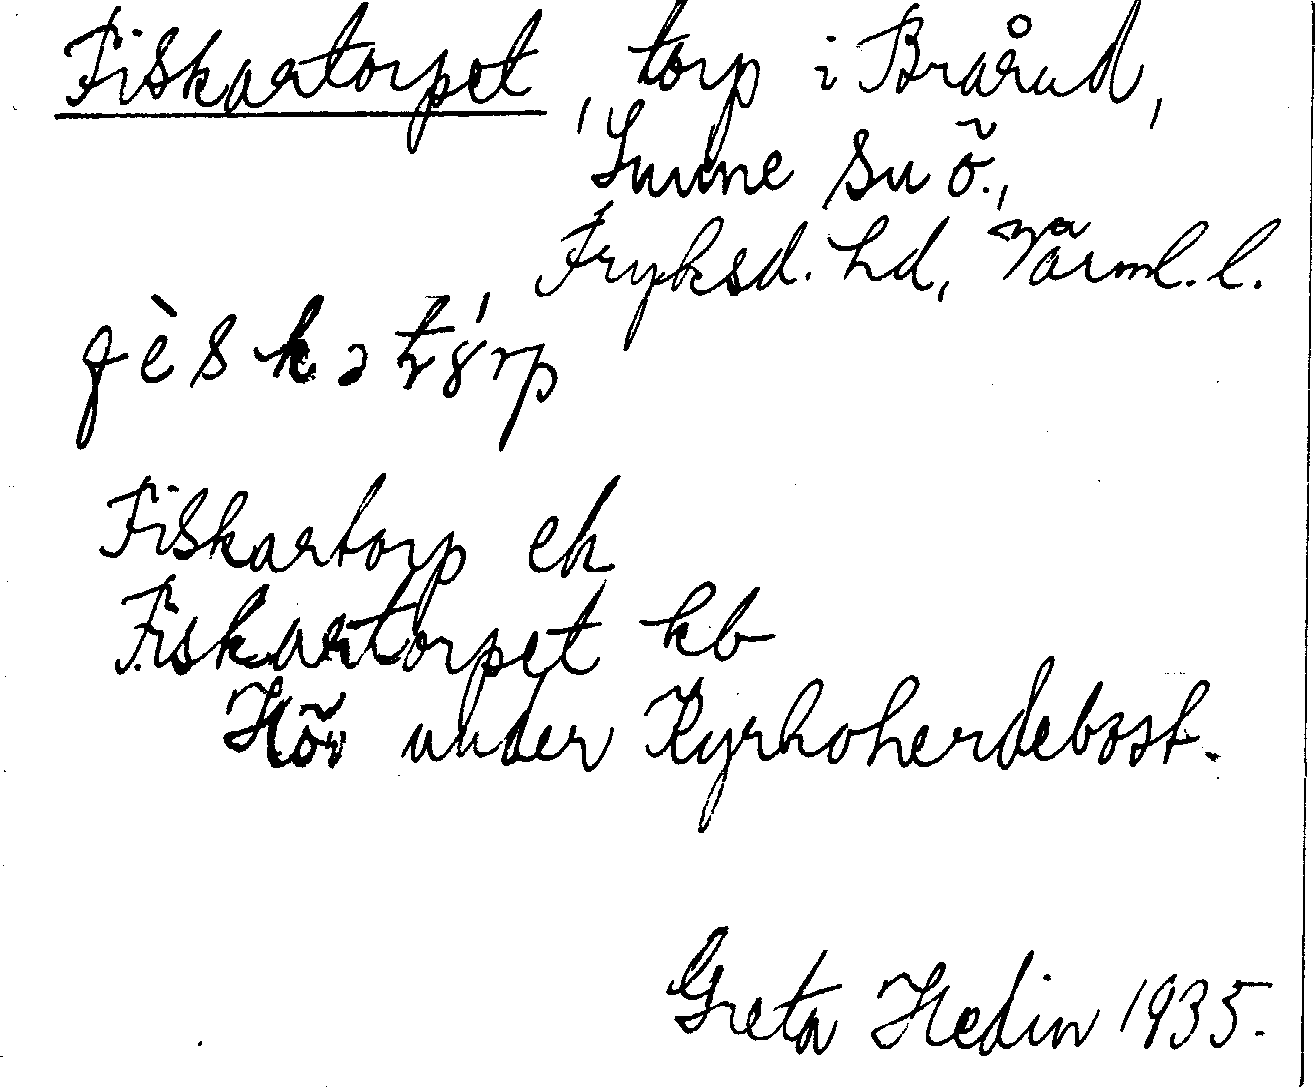 Fiskartorpet, torp i Brårud,
Sunne sn ö.,
Fryksd. hd, Värml. l.
fèskatórp
Fiskartorp ek
Fiskartorpet kb
Hör under Kyrkoherdebost.
Greta Hedin 1935.